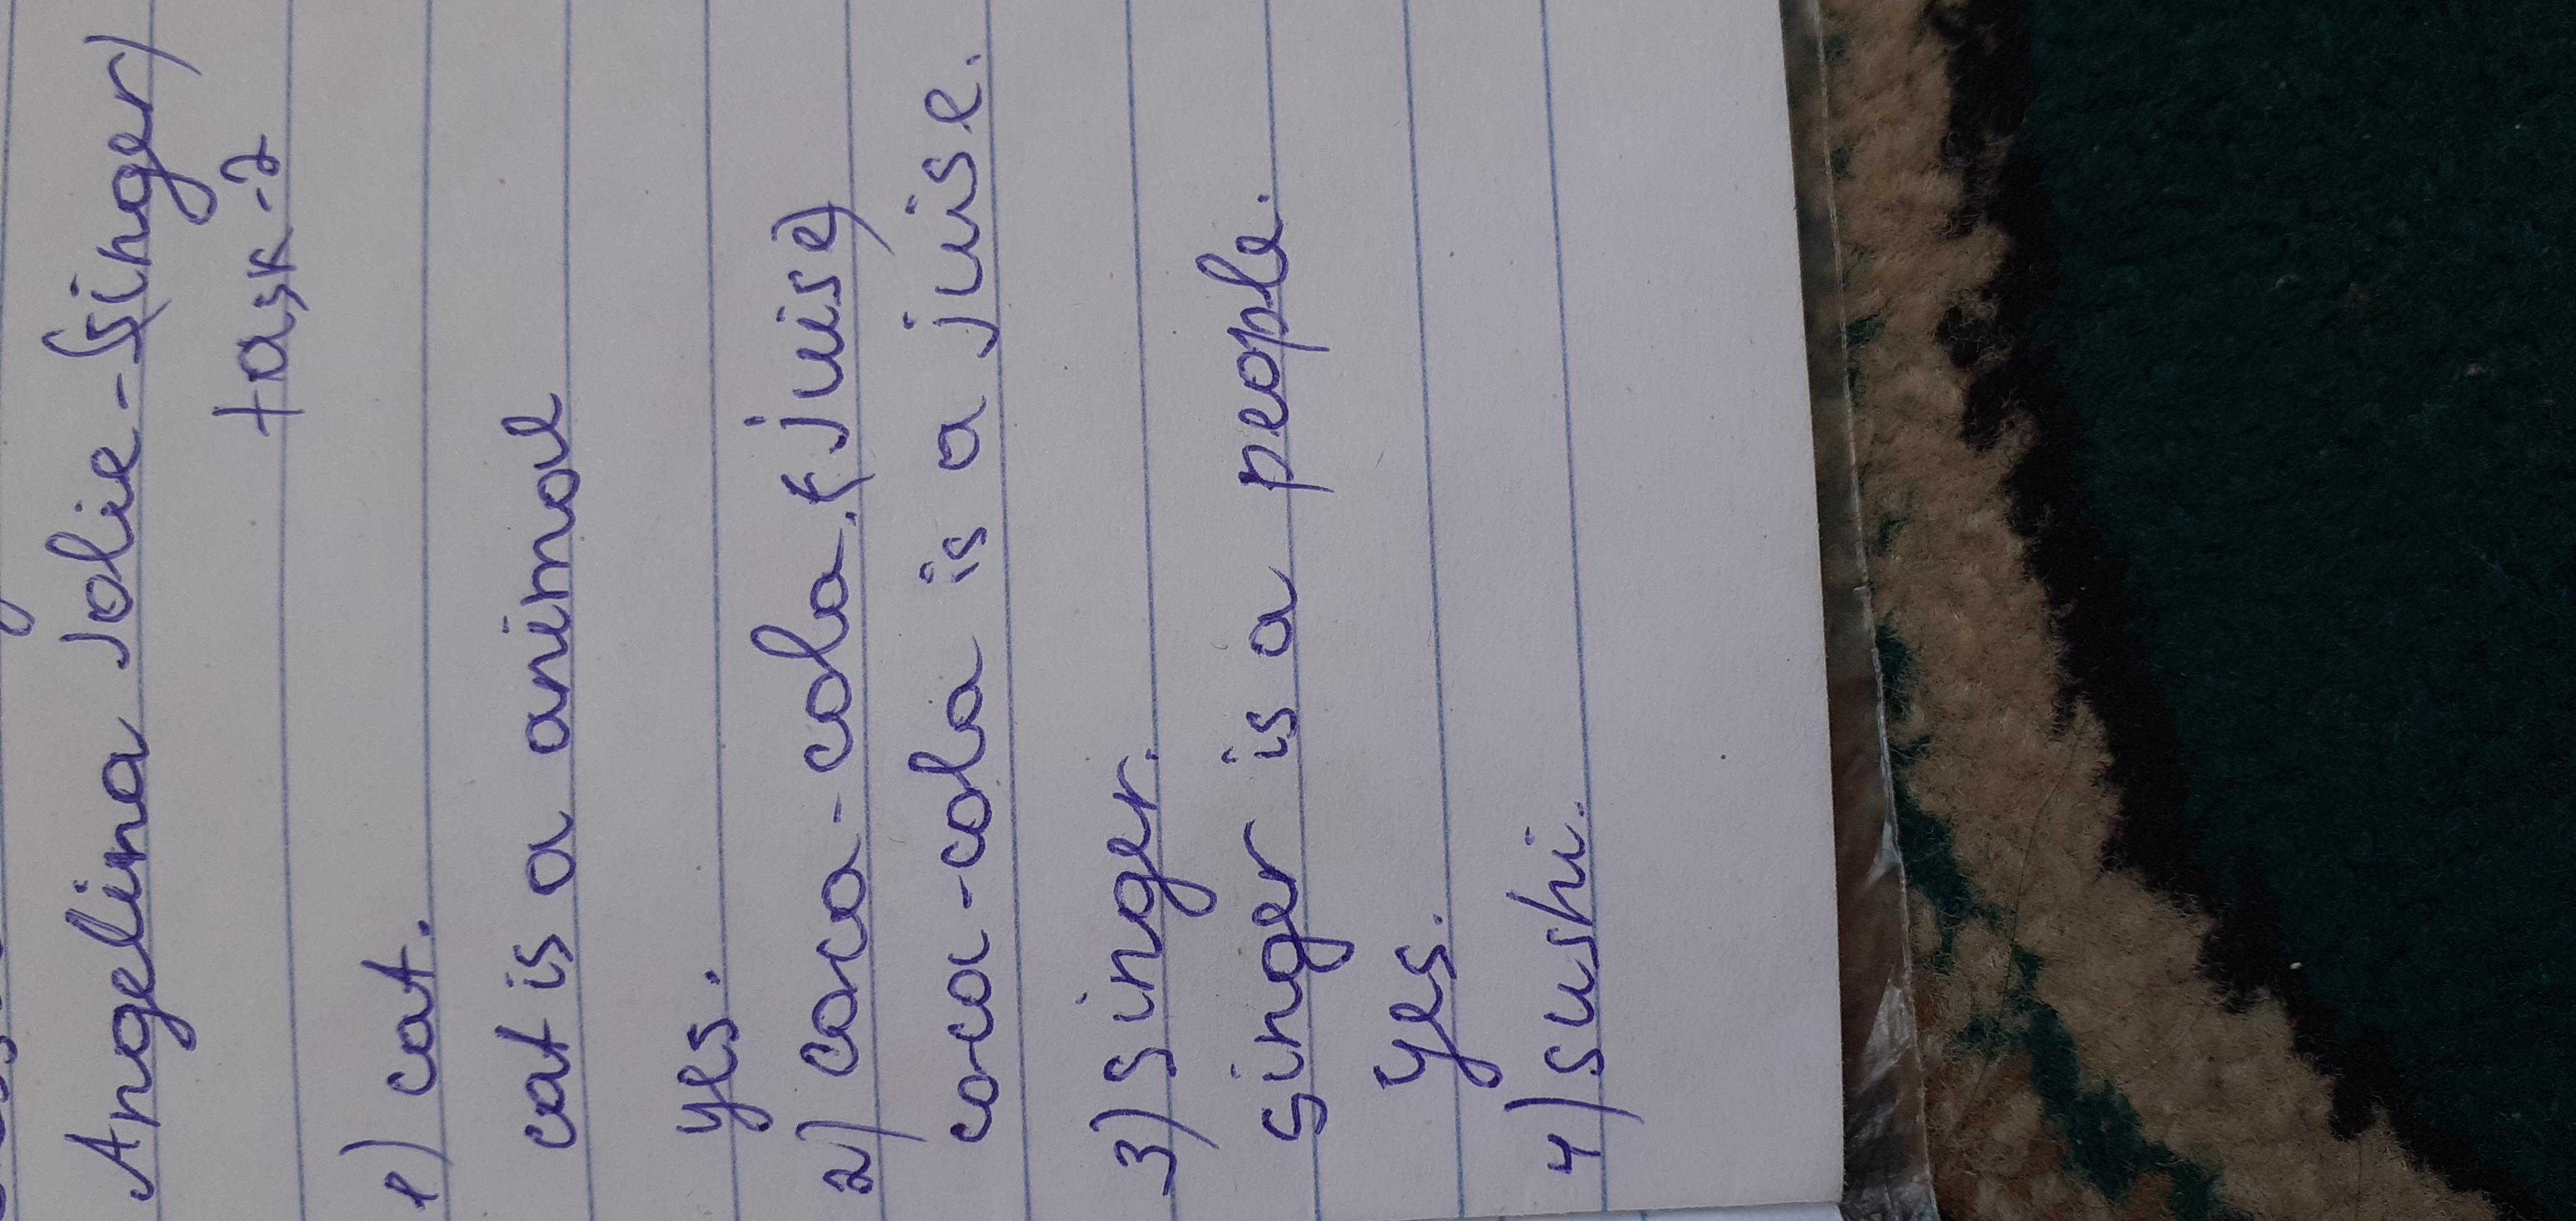 Angelina Jolie-(singer)
task-2
1) cat.
cat is a animal
yes.
2) coca-cola.(juise)
coca-cola is a juise.
3) singer.
singer is a people.
Yes.
4) sushi.